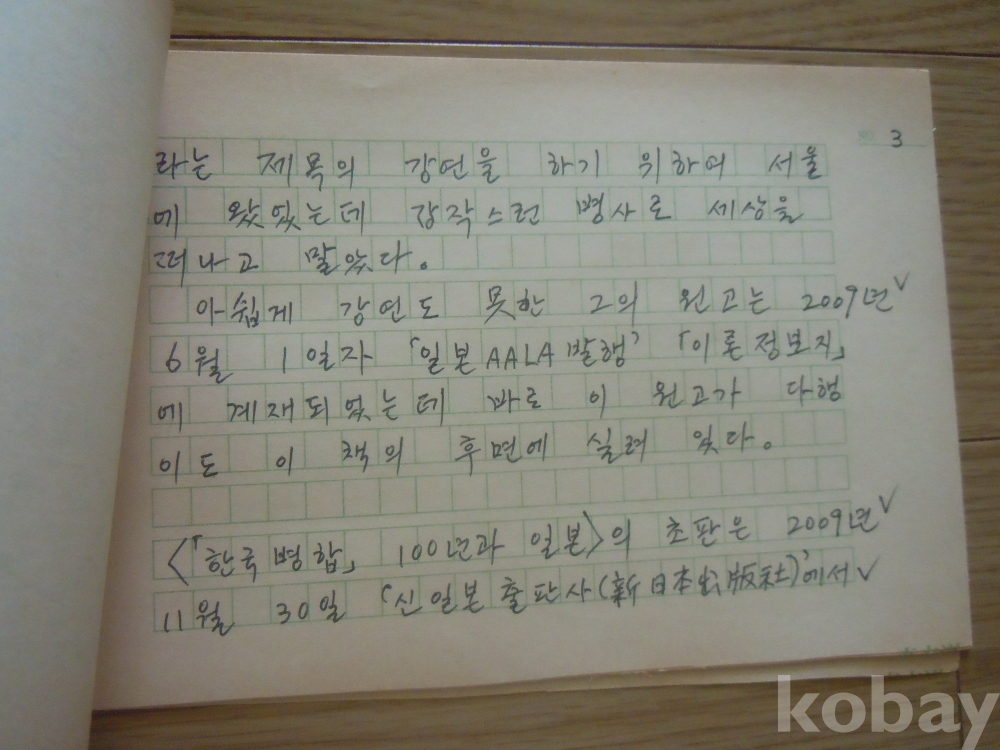 NO. 3
라는 제목의 강연을 하기 위하여 서울
에 왔었는데 갑작스런 병사로 세상을
떠나고 말았다.
아쉽게 강연도 못한 그의 원고는 2009년∨
6월 1일자 「일본AALA발행」 「이론정보지」
에 게재되었는데 바로 이 원고가 다행
이도 이 책의 후면에 실려 있다.
<「한국병합」 100년과 일본>의 초판은 2009년∨
11월 30일 '신일본출판사(新日本出版社)'에서∨
kobay